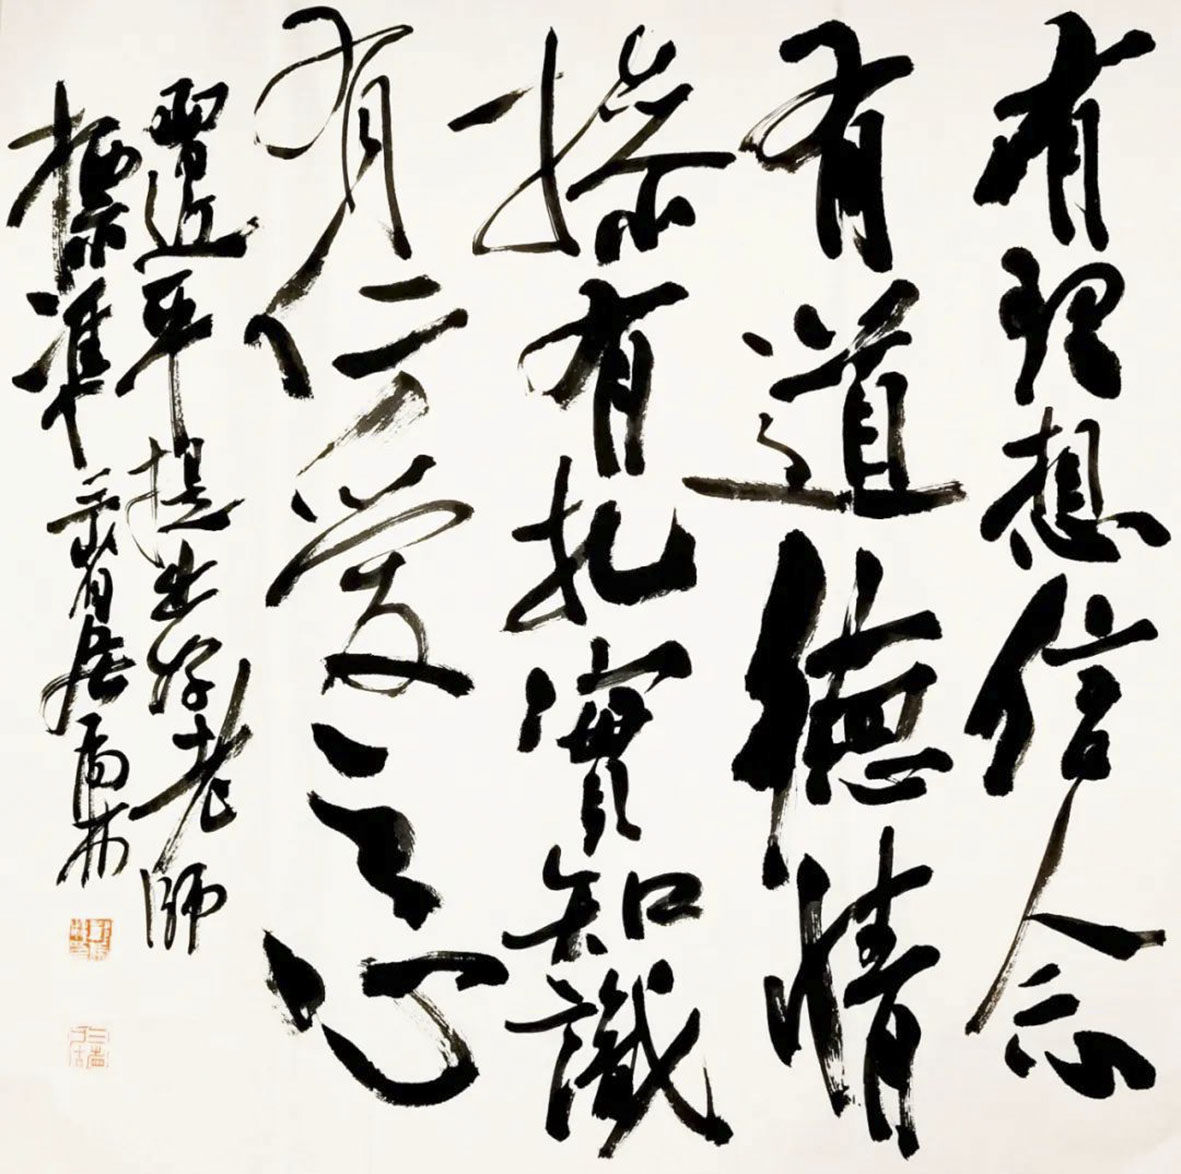 有理想信念
有道德情
操有扎實知識
有仁愛之心
習近平提出好老師
標準